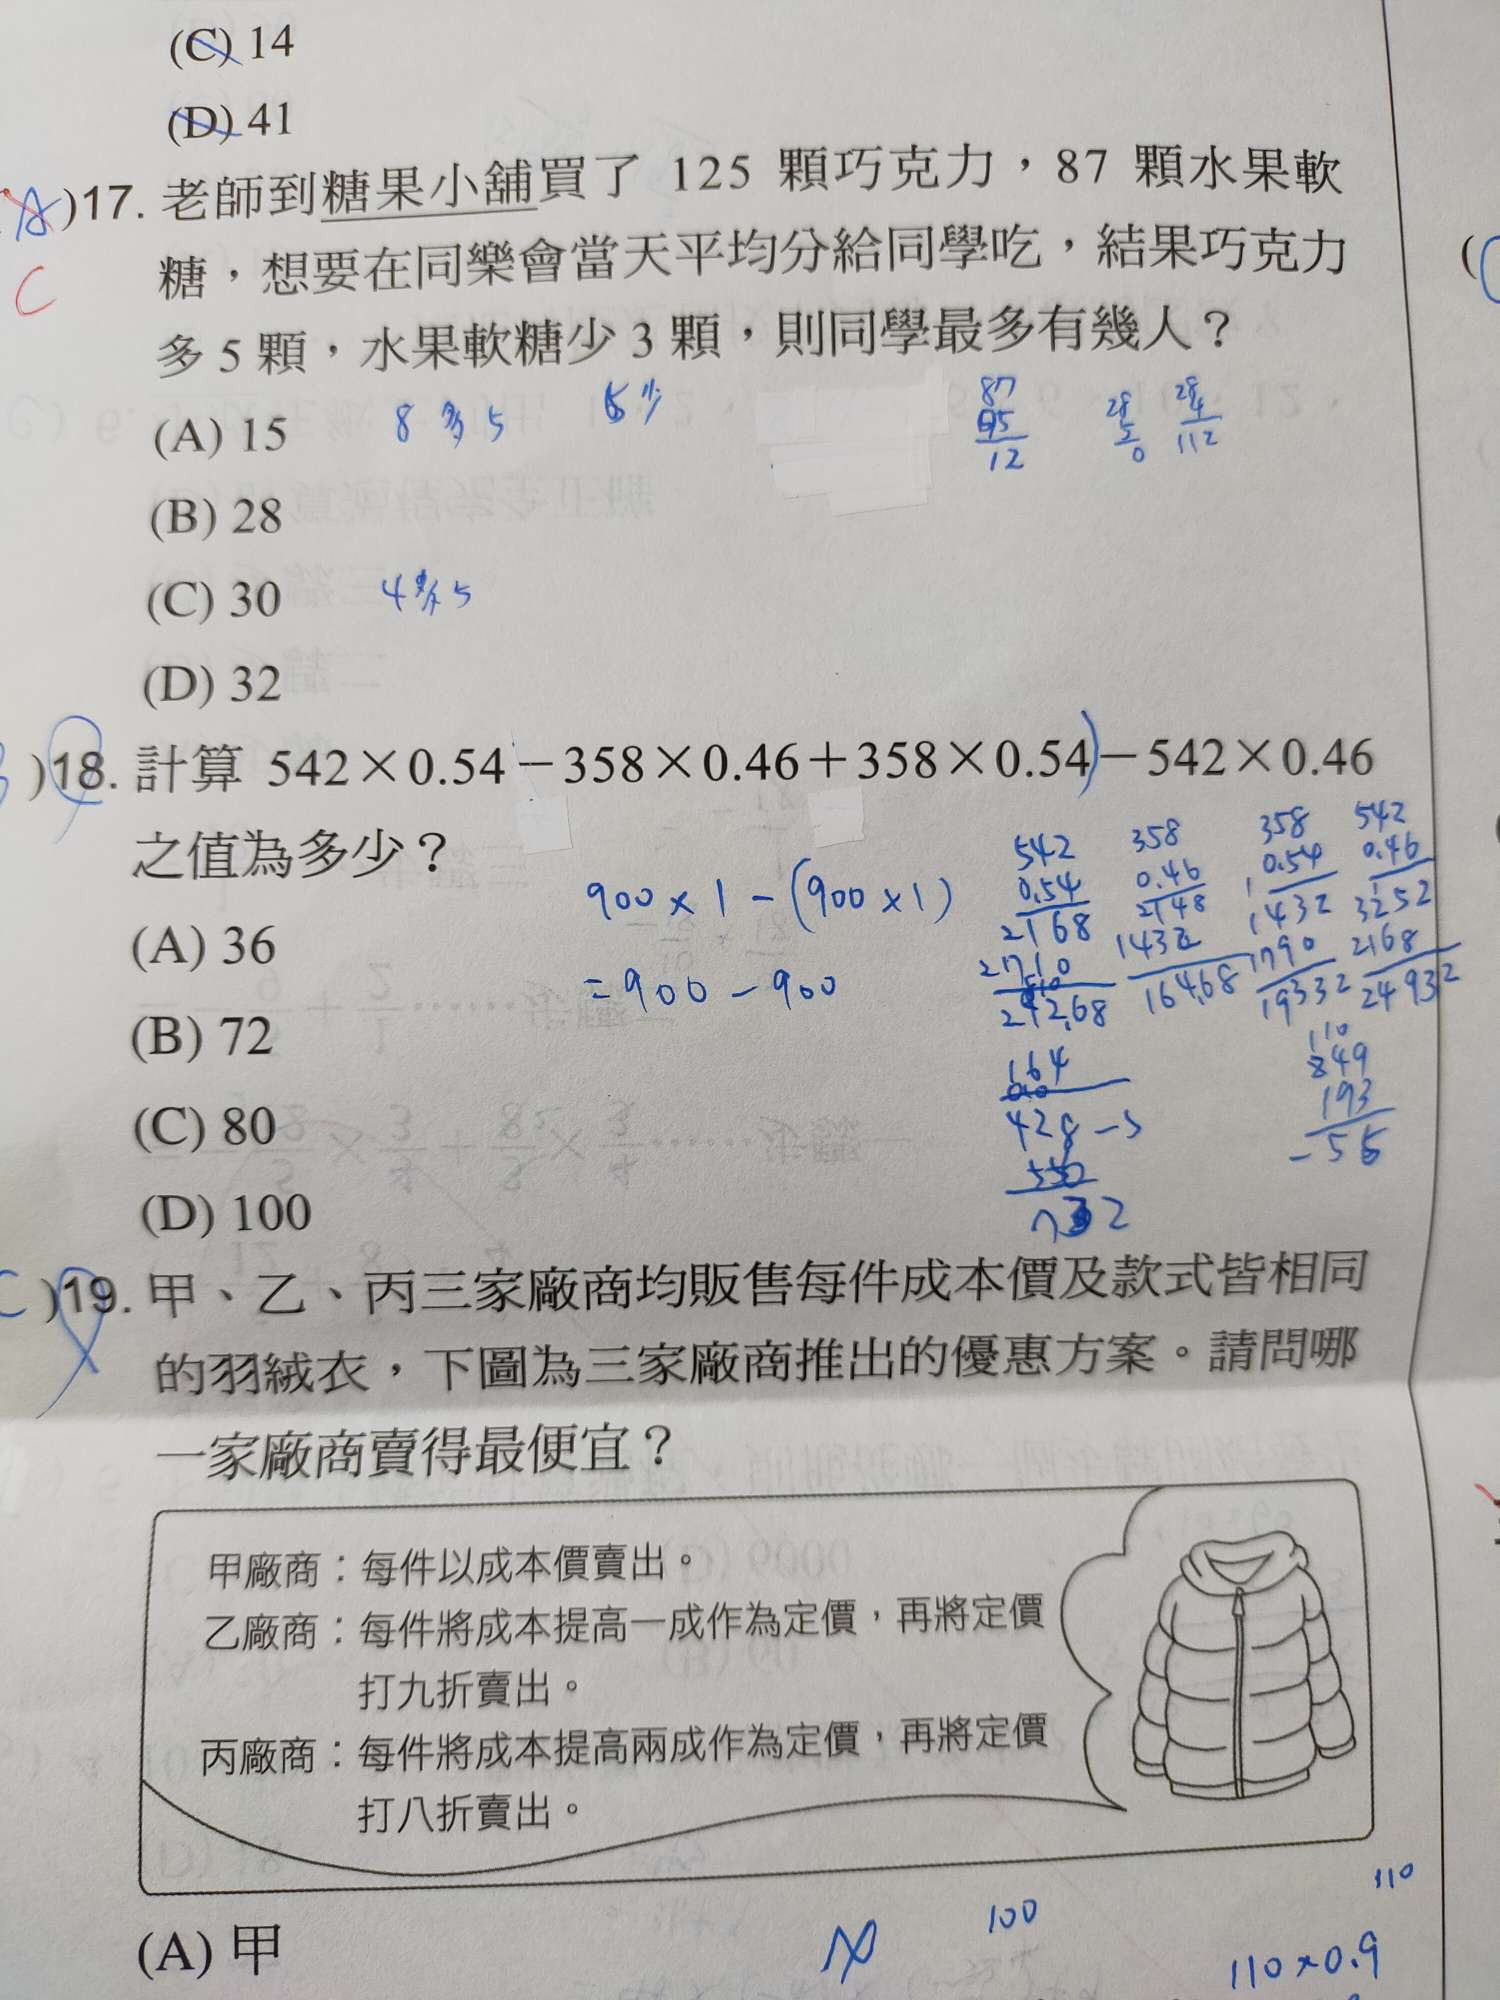 (C) 14
(D) 41
A )17. 老師到糖果小舖買了 125 顆巧克力，87 顆水果軟
C 糖，想要在同樂會當天平均分給同學吃，結果巧克力
多 5 顆，水果軟糖少 3 顆，則同學最多有幾人？
(A) 15 8 多 5 6 少
87
95
12
28
5
0
28
4
112
(B) 28
(C) 30 4 多 5
(D) 32
)18. 計算 542×0.54－358×0.46＋358×0.54)－542×0.46
之值為多少？
900 × 1 - (900 × 1)
= 900 - 900
542
0.54
2168
2710
292.68
358
0.46
2148
1432
164.68
358
0.54
1432
1790
19332
542
0.46
3252
2168
24932
164
428
110
849
193
-56
(A) 36
(B) 72
(C) 80
(D) 100
C )19. 甲、乙、丙三家廠商均販售每件成本價及款式皆相同
的羽絨衣，下圖為三家廠商推出的優惠方案。請問哪
一家廠商賣得最便宜？
甲廠商：每件以成本價賣出。
乙廠商：每件將成本提高一成作為定價，再將定價
打九折賣出。
丙廠商：每件將成本提高兩成作為定價，再將定價
打八折賣出。
(A) 甲
100
110
110×0.9